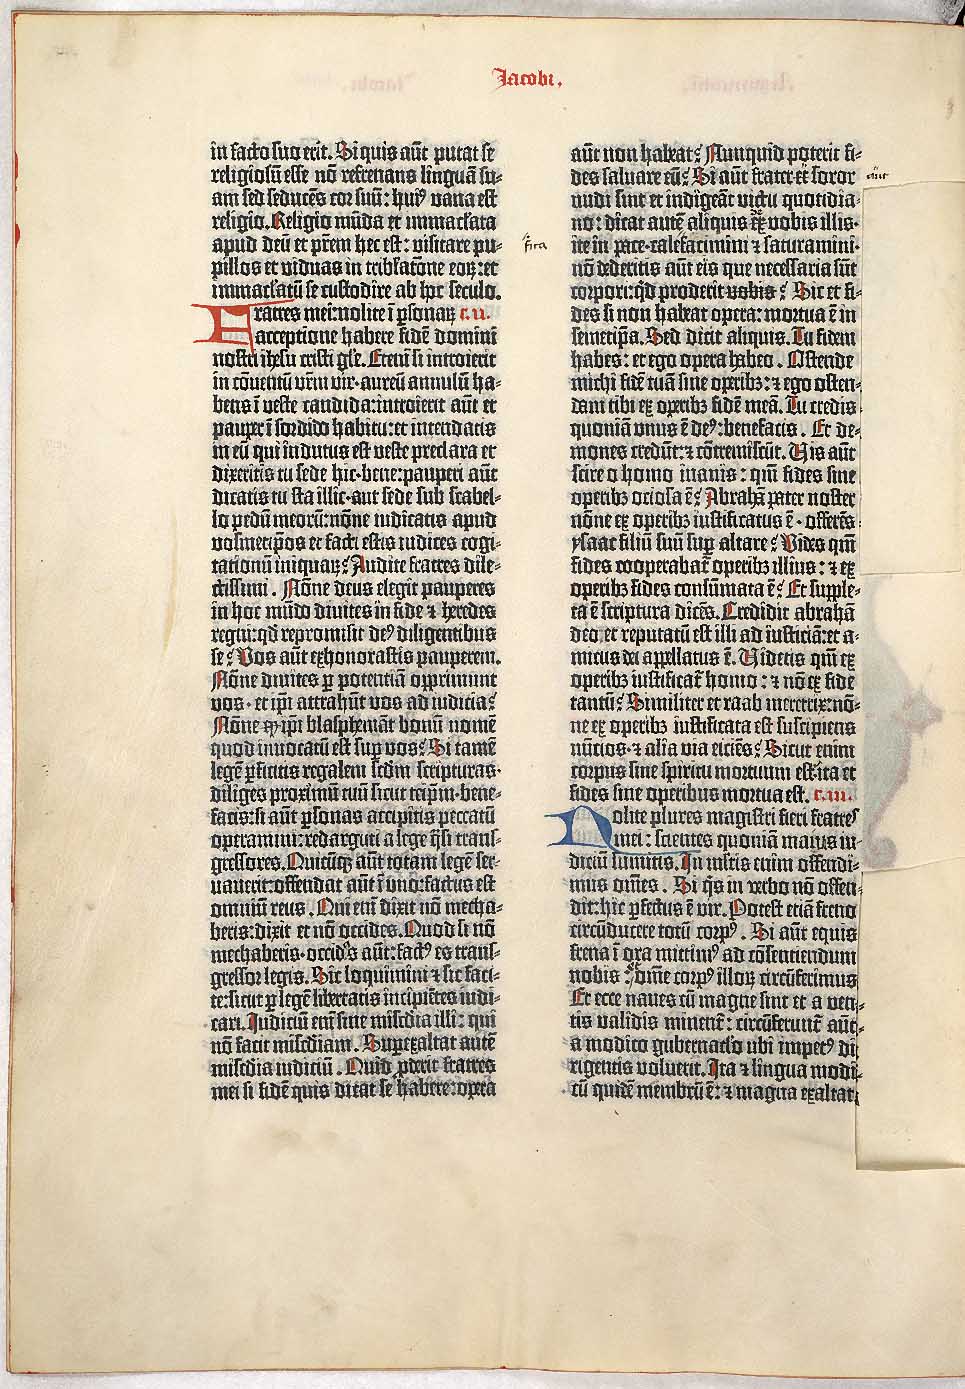 Jacobi.
in facto suo erit. Si quis aūt putat se
religiosū esse nō refrenans linguā su-
am sed seducēs cor suū: huiꝰ vana est
religio. Religio mūda et immaclata
apud deū et prēm hec est: visitare pu-
pillos et viduas in triblatōne eoꝝ: et
immaclatū se custodire ab hoc seculo.
Fratres mei: nolite ī ꝑsonaꝝ c.ii.
acceptione habere fidē domini
nostri ihesu cristi glīe. Etenī si introierit
in cōventū vrm vir· aureū annulū ha-
bens ī veste candida: introierit aūt et
pauper ī sordido habitu: et intendatis
in eū qui indutus est veste preclara et
dixeritis tu sede hic· bene: pauperi aūt
dicatis tu sta illic· aut sede sub scabel-
lo pedū meorū: nōne iudicatis apud
vosmetip̄os et facti estis iudices cogi-
tationū iniquaꝝ? Audite fratres dile-
ctissimi. Nōne deus elegit pauperes
in hoc mūdo divites in fide & heredes
regni: qd̄ repromisit deꝰ diligentibus
se? Vos aūt exhonorastis pauperem.
Nōne divites ꝑ potentiā opprimunt
vos· et ip̄i attrahūt vos ad iudicia?
Nōne ip̄i blasphemāt bonū nomē
quod invocatū est suꝑ vos? Si tamē
legē ꝑficitis regalem scdm scripturas·
diliges proximū tuū sicut teip̄m· bene-
facis: si aūt ꝑsonas accipitis peccatū
operamini: redarguti a lege q̄si trans-
gressores. Quicūqꝫ aūt totam legē ser-
vaverit: offendat aūt ī uno: factus est
omniū reus. Qui enī dixit nō mecha-
beris: dixit et nō occides. Quod si nō
mechaberis· occidis aūt: factꝰ es trans-
gressor legis. Sic loquimini & sic faci-
te: sicut ꝑ legē libertatis incipiētes iudi-
cari. Judiciū enī sine miscdia illi: qui
nō facit miscdiam. Suꝑexaltat autē
miscdia iudiciū. Quid ꝓderit fratres
mei si fidē quis dicat se habere: opera
fica
aūt non habeat? Nunquid poterit fi-
des salvare eū? Si aūt frater et soror
nudi sint et indigeāt victu quotidia-
no: dicat autē aliquis ex vobis illis·
ite in pace· calefacimini & saturamini·
nō dederitis aūt eis que necessaria sūt
corpori: qd̄ proderit vobis? Sic et fi-
des si non habeat opera: mortua ē in
semetip̄a. Sed dicit aliquis. Tu fidem
habes: et ego opera habeo. Ostende
michi fidē tuā sine operibꝫ: & ego osten-
dam tibi ex operibꝫ fidē meā. Tu credis
quoniā unus ē deꝰ: benefacis. Et de-
mones credūt: & cōtremiscūt. Vis aūt
scire o homo inanis: qm̄ fides sine
operibꝫ ociosa ē? Abrahā pater noster
nōne ex operibꝫ iustificatus ē· offerēs
ysaac filiū suū suꝑ altare? Vides qm̄
fides cooperabat̄ operibꝫ illius: & ex
operibꝫ fides consūmata ē? Et supple-
ta ē scriptura dicēs. Credidit abrahā
deo, et reputatū est illi ad iusticiā: et a-
micus dei appellatus ē. Videtis qm̄ ex
operibꝫ iustificat̄ homo: & nō ex fide
tantū? Similiter et raab meretrix: nō-
ne ex operibꝫ iustificata est suscipiens
nūcios· & alia via eiciēs? Sicut enim
corpus sine spiritu mortuum est· ita et
fides sine operibus mortua est. c.iii.
Nolite plures magistri fieri fratres
mei: scientes quoniā maius iu-
diciū sumitis. In mltis enim offendi-
mus om̄es. Si q̄s in verbo nō offen-
dit: hic ꝑfectus ē vir. Potest etiā freno
circūducere totū corpꝰ. Si aūt equis
frena ī ora mittimꝰ ad cōsentiendum
nobis: & om̄e corpꝰ illoꝝ circūferimus
Et ecce naves cū magne sint et a ven-
tis validis minent̄: circūferunt̄ aūt
a modico gubernaclo ubi impetꝰ di-
rigentis voluerit. Ita & lingua modi-
cū quidē membrū ē: & magna exaltat.